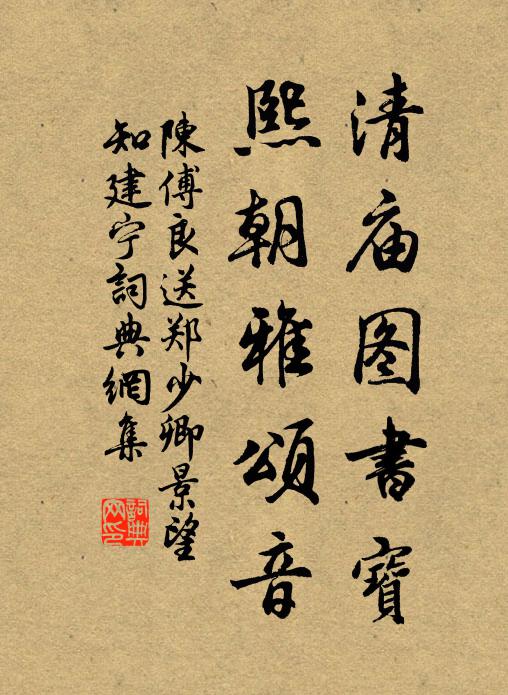 清庙图書寶
熙朝雅頌音
陳傅良送郑少卿景望
知建宁詞典網集
詞典网印